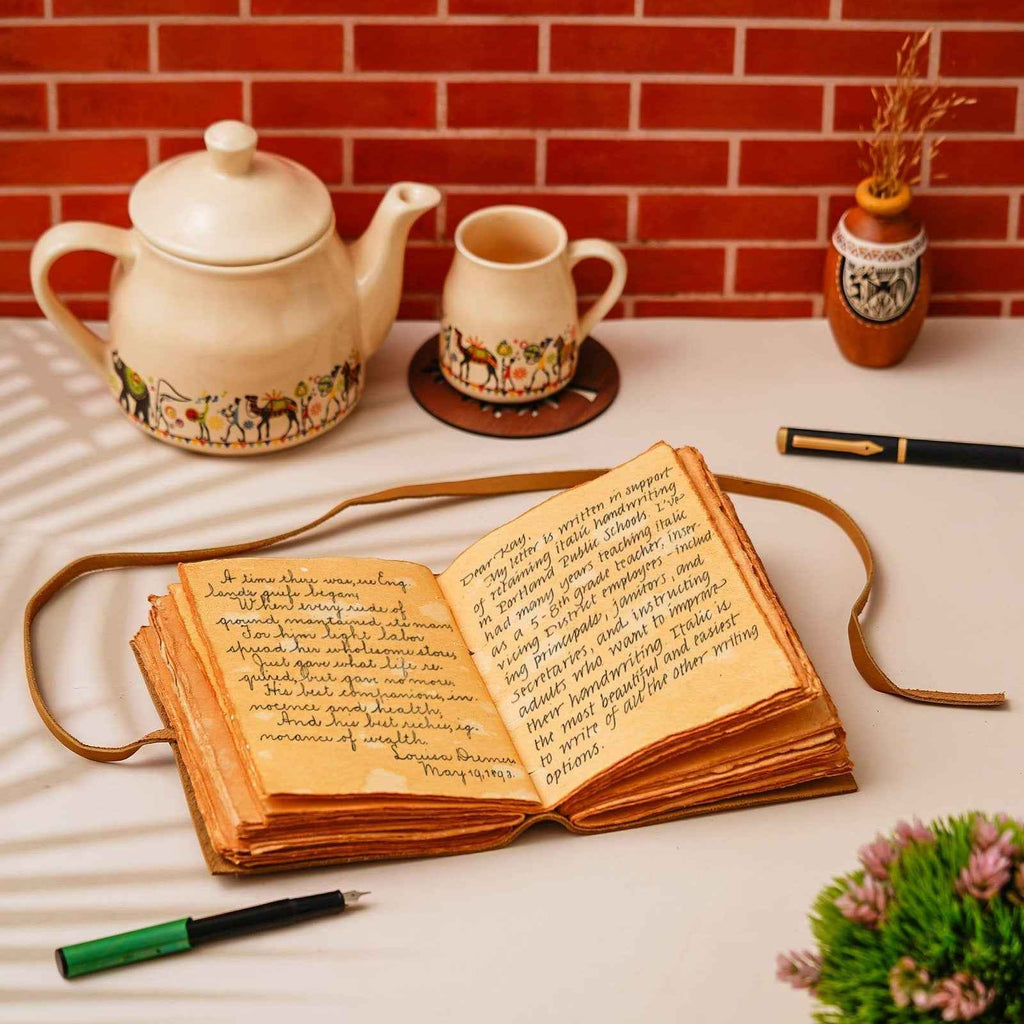 A time there was, ere Eng
land's griefs began,
When every rood of
ground maintained its man
For him light labor
spread her wholesome store,
Just gave what life re-
quired, but gave no more,
His best companions, in-
nocence and health,
And his best riches, ig-
norance of wealth.
Louisa
May 19, 1893.
Dear Kay,
My letter is written in support
of retaining italic handwriting
in Portland Public Schools. I've
had many years teaching italic
as a 5-8th grade teacher, inser-
vicing District employees includ
ing principals, janitors, and
secretaries, and instructing
adults who want to improve
their handwriting. Italic is
the most beautiful and easiest
to write of all the other writing
options.